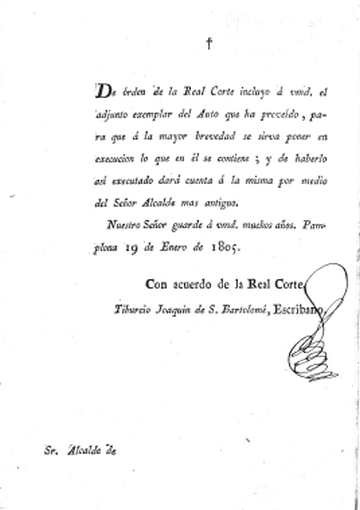 †
De órden de la Real Corte incluyo á vmd. el
adjunto exemplar del Auto que ha proveído, pa-
ra que á la mayor brevedad se sirva poner en
execucion lo que en él se contiene; y de haberlo
así executado dará cuenta á la misma por medio
del Señor Alcalde mas antiguo.
Nuestro Señor guarde á vmd. muchos años. Pam-
plona 19 de Enero de 1805.
Con acuerdo de la Real Corte,
Tiburcio Joaquin de S. Bartolomé, Escribano.
Sr. Alcalde de